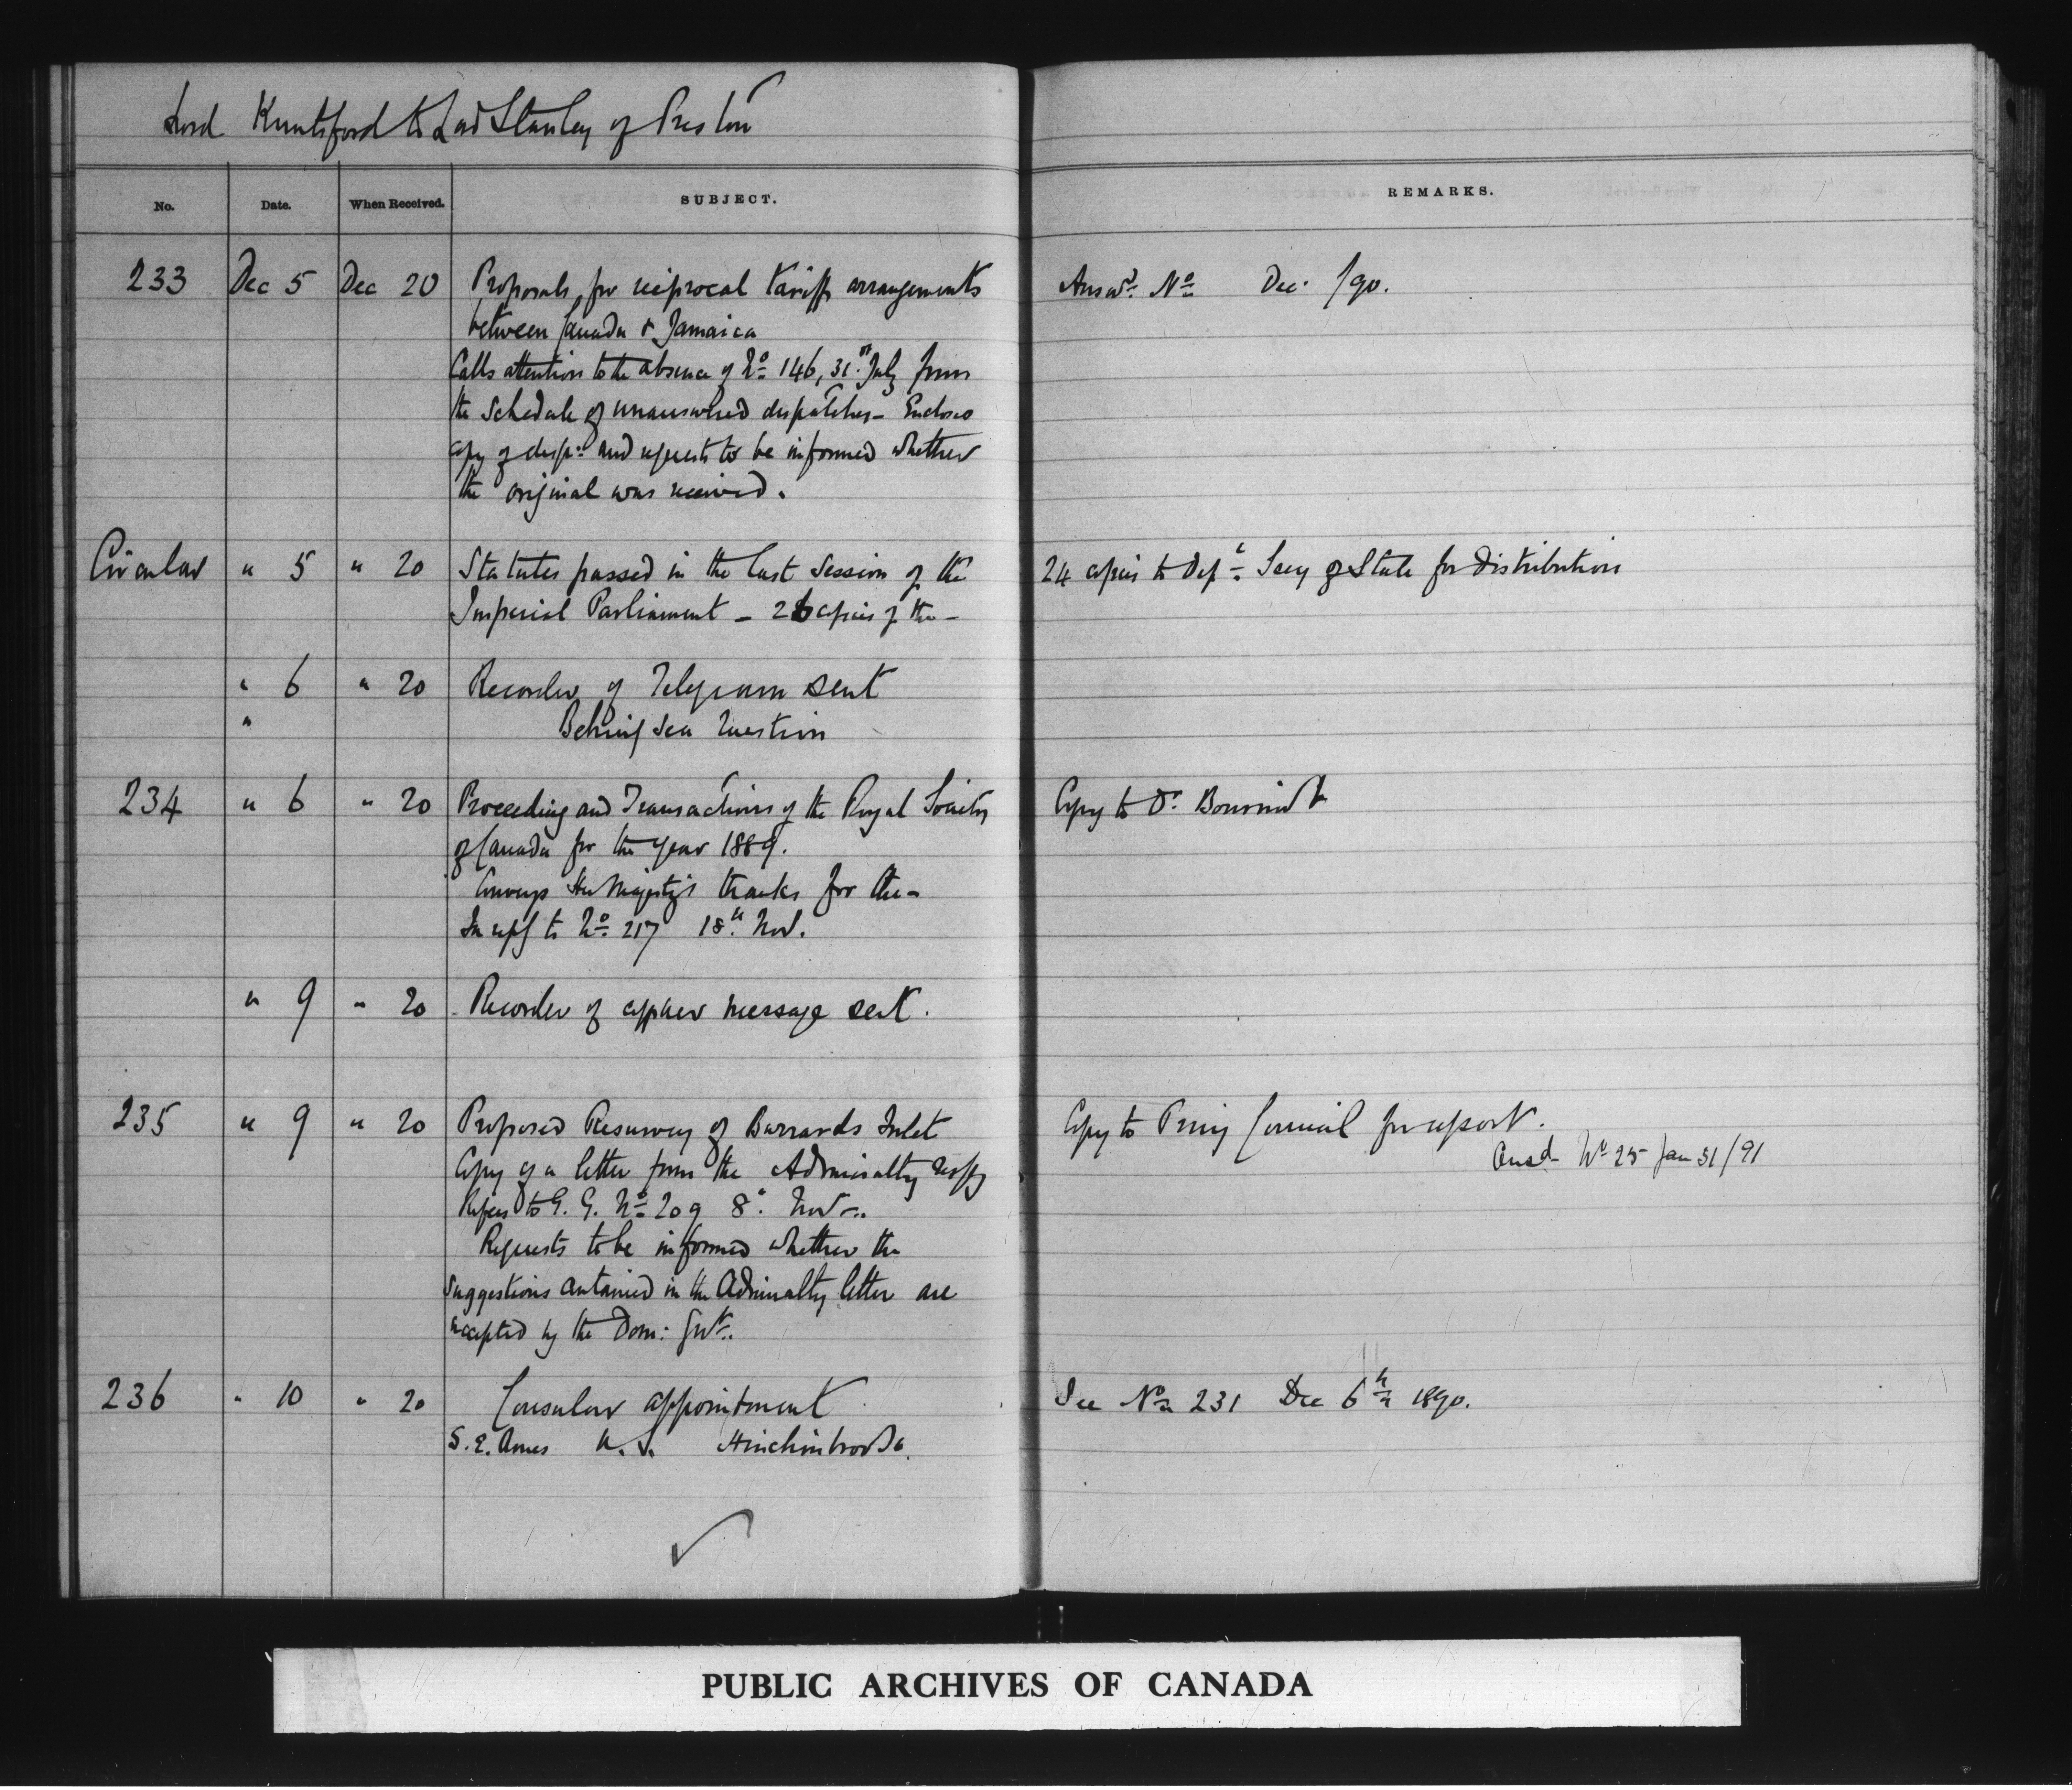 Lord Knutsford to Lord Stanley of Preston
No. Date. When Received. SUBJECT. REMARKS.
233 Dec 5 Dec 20 Proposals for reciprocal tariff arrangements Answd. No Dec. /90.
between Canada & Jamaica
Calls attention to the absence of No 146, 31st July from
the Schedule of unanswered despatches - Encloses
copy of desp: and requests to be informed whether
the original was received.
Circular " 5 " 20 Statutes passed in the last Session of the 24 copies to Dept Secy of State for distribution
Imperial Parliament - 26 copies of the -
" 6 " 20 Recorder of Telegram sent
" Behring Sea Question
234 " 6 " 20 Proceeding and Transactions of the Royal Society Copy to Dr. Bourinot
of Canada for the year 1889.
Conveys Her Majesty's thanks for the -
In reply to No 217 18th Nov.
" 9 " 20 Recorder of cypher message sent.
235 " 9 " 20 Proposed Resurvey of Burrards Inlet Copy to Privy Council for report.
Ansd No 25 Jan 31/91
Copy of a letter from the Admiralty respg
Refers to G. G. No 209 8th Nov.
Requests to be informed whether the
suggestions contained in the Admiralty letter are
accepted by the Dom: Govt.
236 " 10 " 20 Consular appointment See No 231 Dec 6th 1890.
S. E. Ames U.S. Hinchinbrooke.
PUBLIC ARCHIVES OF CANADA